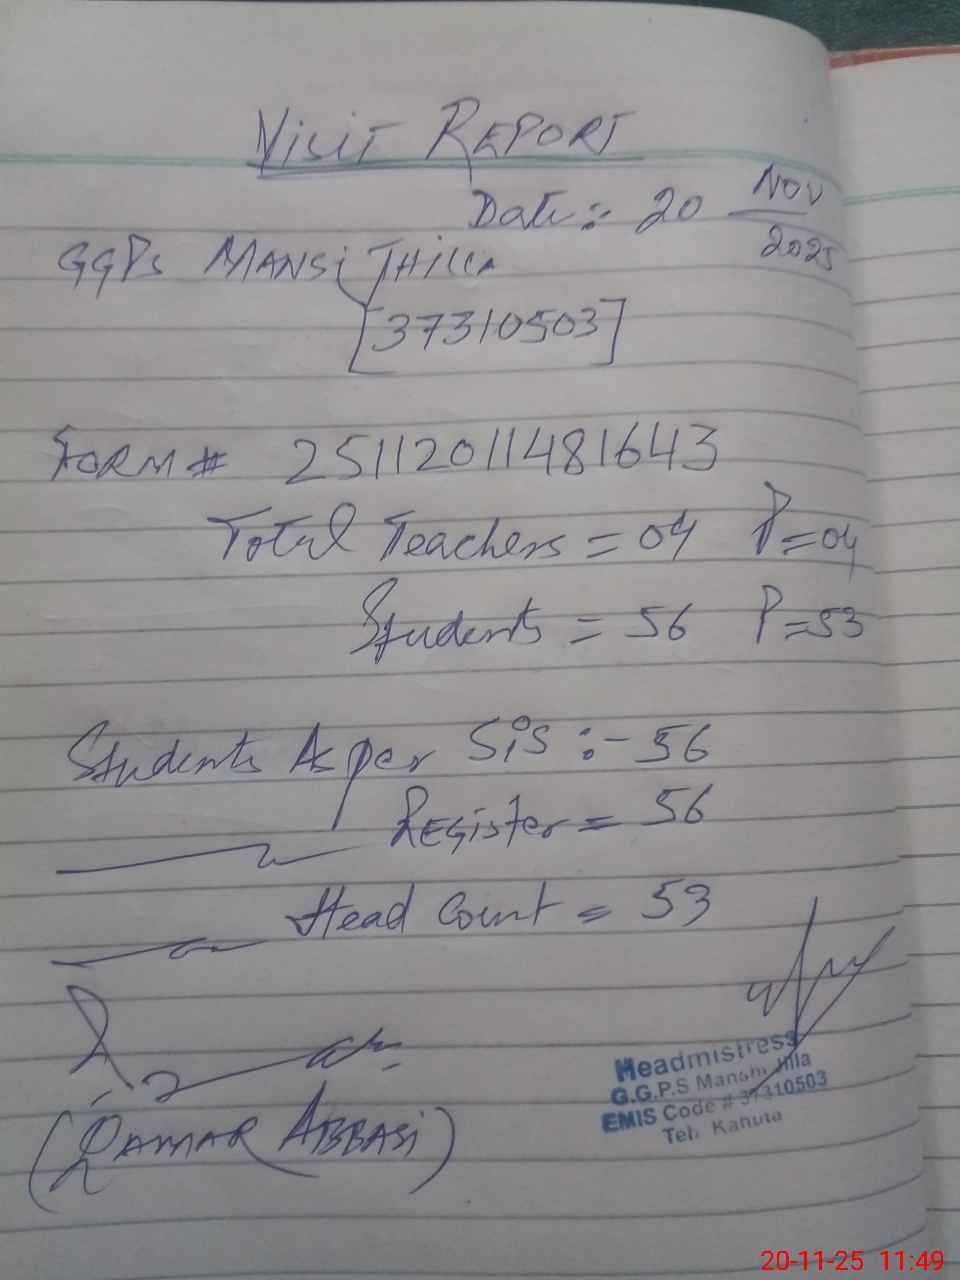 VISIT REPORT
Date:- 20 NOV
2025
GGPS MANSI THILLA
[37310503]
FORM # 25112011481643
Total Teachers = 04 P=04
Students = 56 P=53
Students As per SiS :- 56
REGister = 56
Head Count = 53
(QAMAR ABBASI)
Headmistress
G.G.P.S Manshi
EMIS Code # 37310503
Teh Kahuta
20-11-25 11:49